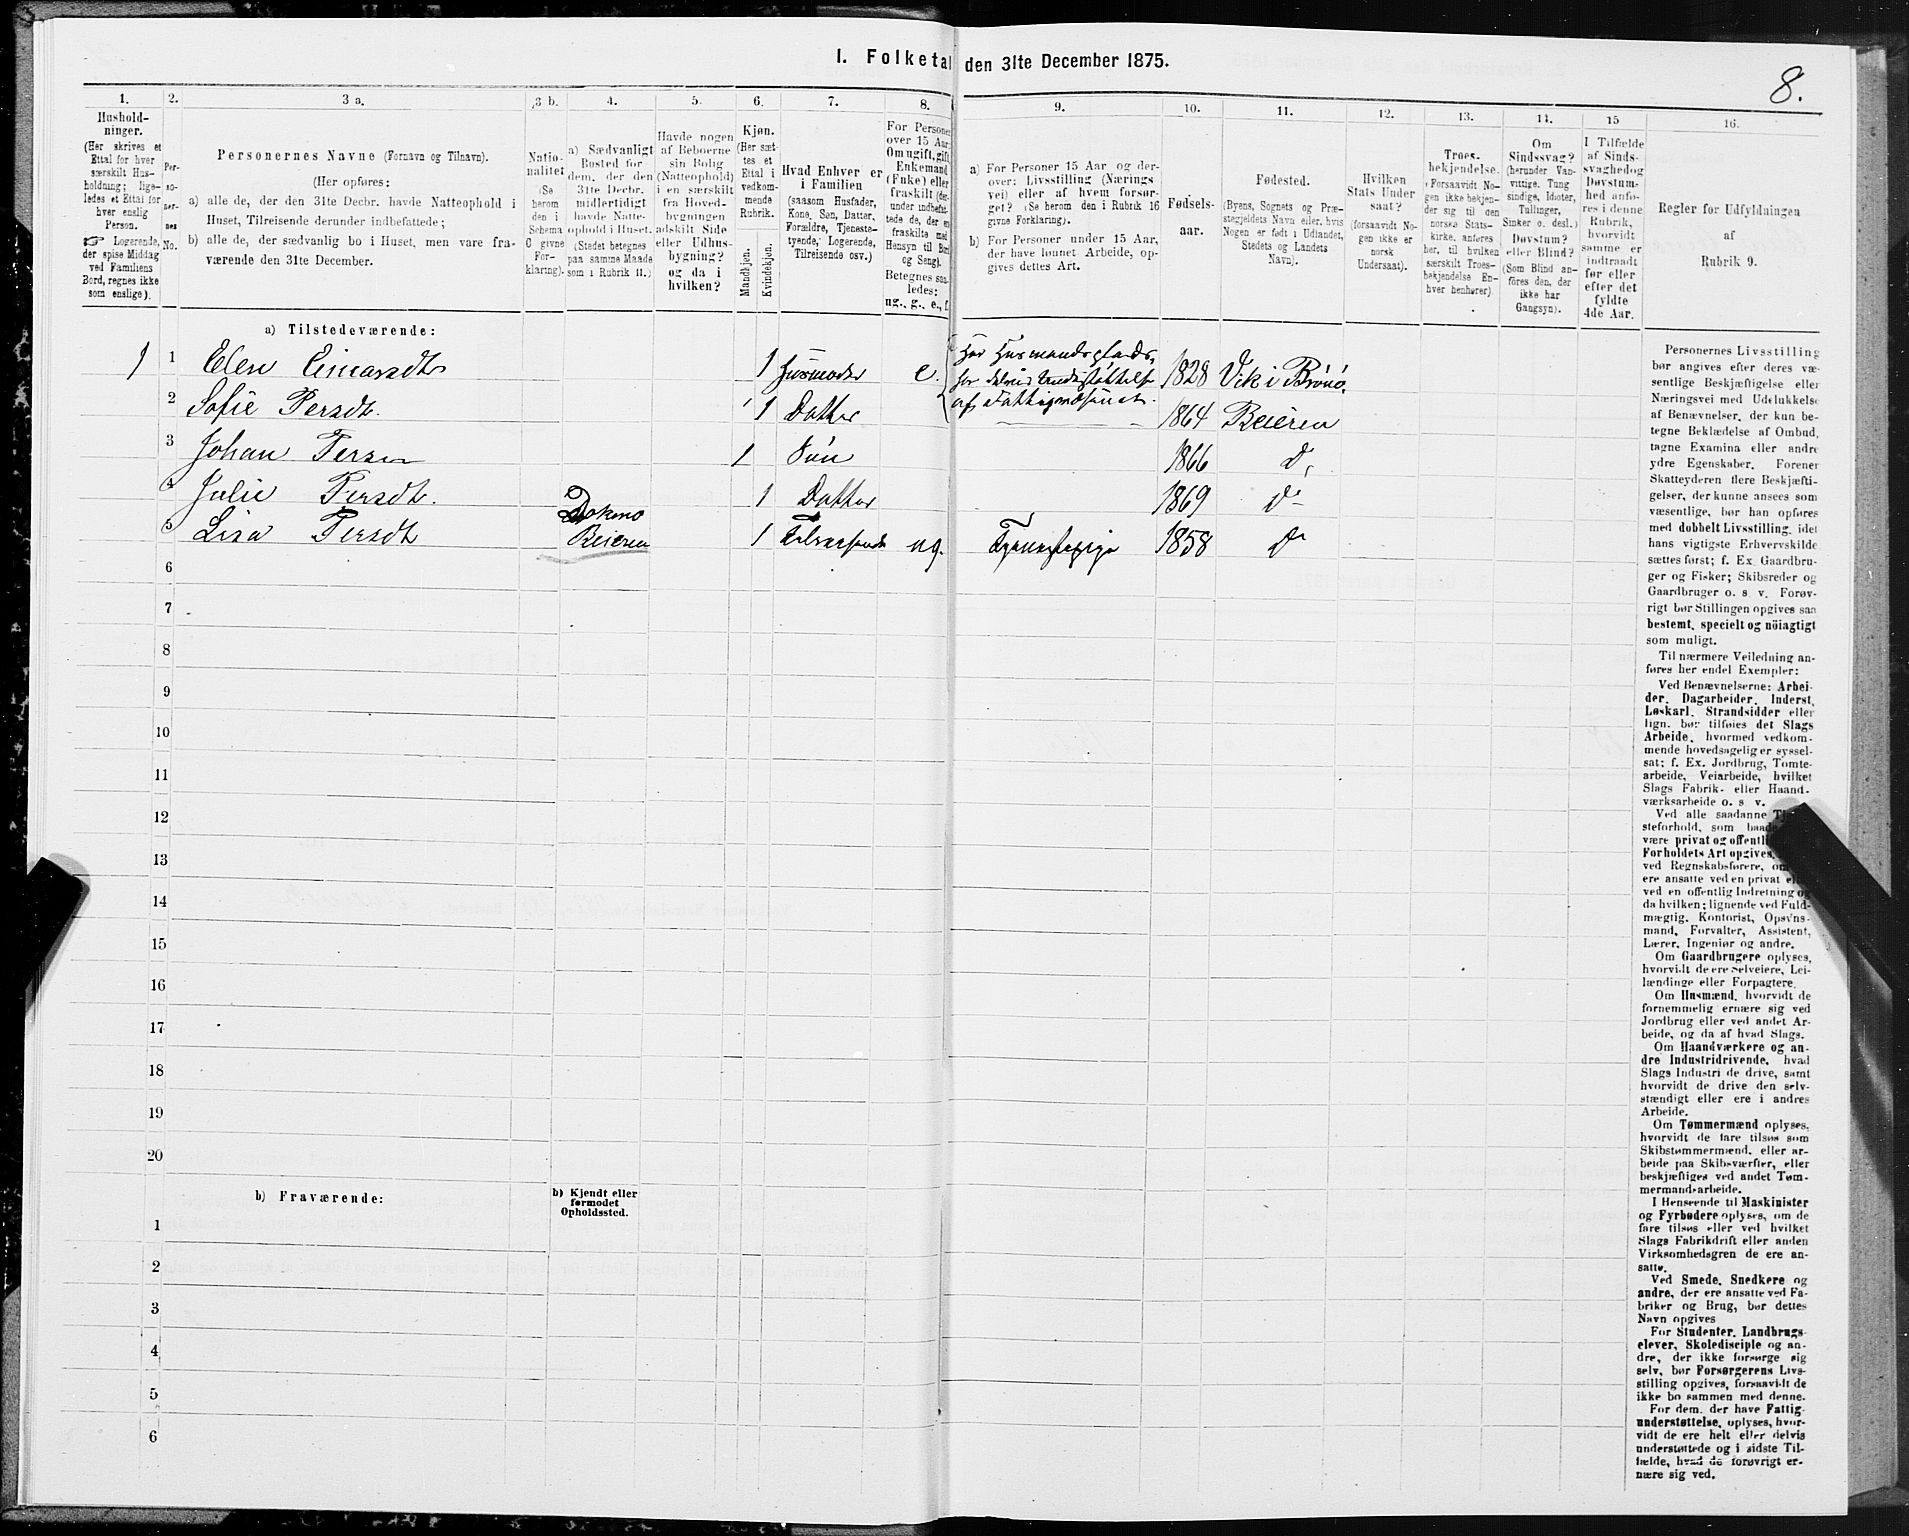 I. Folketal den 31te December 1875.
8.
1.
Husholdninger.
(Her skrives et
Ettal for hver
særskilt Hus-
holdning; lige-
ledes et Ettal for
hver enslig
Person.
☞ Logerende,
der spise Middag
ved Familiens
Bord, regnes ikke
som enslige).
2.
Per-
so-
ner-
nes
No.
3 a.
Personernes Navne (Fornavn og Tilnavn).
(Her opføres:
a) alle de, der den 31te Decbr. havde Natteophold i
Huset, Tilreisende derunder indbefattede;
b) alle de, der sædvanlig bo i Huset, men vare fra-
værende den 31te December.
3 b.
Natio-
nalitet
(Se
herom
den i
Schema
C givne
For-
klaring).
4.
a) Sædvanligt
Bosted for
dem, der den
31te Decbr.
midlertidigt
havde Natte-
ophold i Huset.
(Stedet betegnes
paa samme Maade
som i Rubrik 11.)
5.
Havde nogen
af Beboerne
sin Bolig
(Natteophold)
i en særskilt
fra Hoved-
bygningen
adskilt Side
eller Udhus-
bygning?
og da i
hvilken?
6.
Kjøn.
(Her sæt-
tes et
Ettal i
vedkom-
mende
Rubrik.
Mandkjøn.
Kvindekjøn.
7.
Hvad Enhver er
i Familien
(saasom Husfader,
Kone, Søn, Datter,
Forældre, Tjeneste-
tyende, Logerende,
Tilreisende osv.)
8.
For Personer
over 15 Aar:
Om ugift, gift,
Enkemand
(Enke) eller
fraskilt (der-
under indbefat-
tede de, der ere
fraskilte med
Hensyn til Bord
og Seng).
Betegnes saa-
ledes:
ug., g., e., f.
9.
a) For Personer 15 Aar og der-
over: Livsstilling (Nærings-
vei) eller af hvem forsør-
get? (Se herom den i Rubrik 16
givne Forklaring).
b) For Personer under 15 Aar,
der have lønnet Arbeide, op-
gives dettes Art.
10.
Fødsels-
aar.
11.
Fødested.
(Byens, Sognets og Præ-
stegjeldets Navn eller, hvis
Nogen er født i Udlandet,
Stedets og Landets
Navn).
12.
Hvilken
Stats Under-
saat?
(forsaavidt No-
gen ikke er
norsk
Undersaat).
13.
Troes-
bekjendelse.
(Forsaavidt No-
gen ikke bekjen-
der sig til den
norske Stats-
kirke, anføres
her, til hvilken
særskilt Troes-
bekjendelse En-
hver henhører).
14.
Om
Sindssvag?
(herunder Van-
vittige, Tung-
sindige, Idioter,
Tullinger,
Sinker o. desl.)
Døvstum?
eller Blind?
(Som Blind an-
føres den, der
ikke har
Gangsyn).
15
I Tilfælde
af Sinds-
svaghed og
Døvstum-
hed anfø-
res i denne
Rubrik,
hvorvidt
samme er
indtraadt
før eller
efter det
fyldte
4de Aar.
16.
Regler for Udfyldningen
af
Rubrik 9.
a) Tilstedeværende:
1 1 Elen Einarsdt 1 Husmoder e. Har Husmandsplads,
har delvis Understøttelse
af Fattigvæsenet. 1828 Vik i Brønø
2 Sofie Persdt. 1 Datter 1864 Beieren
3 Johan Persen 1 Søn 1866 do
4 Julie Persdt. 1 Datter 1869 do
5 Lisa Persdt Beieren 1 ug. Tjenestepige 1858 do
6
7
8
9
10
11
12
13
14
15
16
17
18
19
20
b) Fraværende:
b) Kjendt eller
formodet
Opholdssted.
1
2
3
4
5
6
Personernes Livsstilling
bør angives efter deres væ-
sentlige Beskjæftigelse eller
Næringsvei med Udelukkelse
af Benævnelser, der kun be-
tegne Beklædelse af Ombud,
tagne Examina eller andre
ydre Egenskaber. Forener
Skatteyderen flere Beskjæfti-
gelser, der kunne ansees som
væsentlige, bør han opføres
med dobbelt Livsstilling, idet
hans vigtigste Erhvervskilde
sættes først; f. Ex. Gaardbru-
ger og Fisker; Skibsreder og
Gaardbruger o. s. v. Forøv-
rigt bør Stillingen opgives saa
bestemt, specielt og nöiagtigt
som muligt.
Til nærmere Veiledning an-
føres her endel Exempler:
Ved Benævnelserne: Arbei-
der, Dagarbeider, Inderst,
Løskarl, Strandsidder eller
lign. bør tilføies det Slags
Arbeide, hvormed vedkom-
mende hovedsagelig er syssel-
sat; f. Ex. Jordbrug, Tomte-
arbeide, Veiarbeide, hvilket
Slags Fabrik- eller Haand-
værksarbeide o. s. v.
Ved alle saadanne Tje-
steforhold, som baade
være privat og offentli
Forholdets Art opgives,
ved Regnskabsførere, om
ere ansatte ved en privat el
ved en offentlig Indretning og
da hvilken; lignende ved Fuld-
mægtig, Kontorist, Opsyns-
mand, Forvalter, Assistent,
Lærer, Ingeniør og andre.
Om Gaardbrugere oplyses,
hvorvidt de ere Selveiere, Lei-
lændinge eller Forpagtere.
Om Husmænd, hvorvidt de
fornemmelig ernære sig ved
Jordbrug eller ved andet Ar-
beide, og da af hvad Slags.
Om Haandværkere og an-
dre Industridrivende, hvad
Slags Industri de drive, samt
hvorvidt de drive den selv-
stændigt eller ere i andres
Arbeide.
Om Tømmermænd oplyses,
hvorvidt de fare tilsøs som
Skibstømmermænd, eller ar-
beide paa Skibsværfter, eller
beskjæftiges ved andet Tøm-
mermandsarbeide.
I Henseende til Maskinister
og Fyrbødere oplyses, om de
fare tilsøs eller ved hvilket
Slags Fabrikdrift eller anden
Virksomhedsgren de ere an-
satte.
Ved Smede, Snedkere og
andre, der ere ansatte ved Fa-
briker og Brug, bør dettes
Navn opgives
For Studenter, Landbrugs-
elever, Skoledisciple og an-
dre, der ikke forsørge sig
selv, bør Forsørgerens Livs-
stilling opgives, forsaavidt de
ikke bo sammen med denne.
For dem, der have Fattig-
understøttelse, oplyses, hvor-
vidt de ere helt eller delvis
understøttede og i sidste Til-
fælde, hvad de forøvrigt er-
nære sig ved.